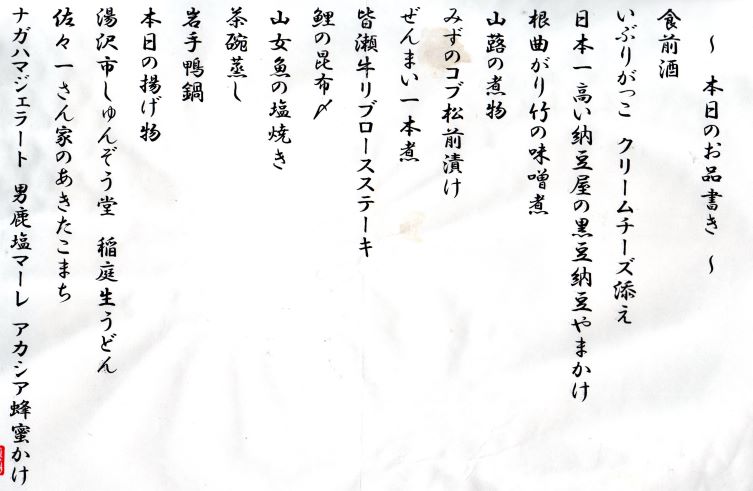 〜 本日のお品書き 〜
食前酒
いぶりがっこ クリームチーズ添え
日本一高い納豆屋の黒豆納豆やまかけ
根曲がり竹の味噌煮
山蕗の煮物
みずのコブ松前漬け
ぜんまい一本煮
皆瀬牛リブロースステーキ
鯉の昆布〆
山女魚の塩焼き
茶碗蒸し
岩手鴨鍋
本日の揚げ物
湯沢市しゅんぞう堂 稲庭生うどん
佐々一さん家のあきたこまち
ナガハマジェラート 男鹿塩マーレ アカシア蜂蜜かけ